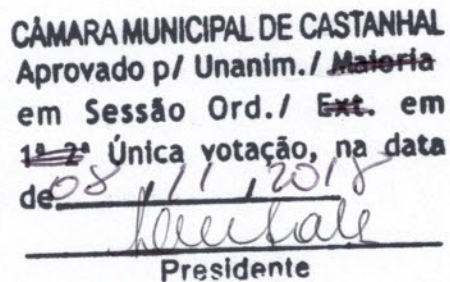 CÂMARA MUNICIPAL DE CASTANHAL
Aprovado p/ Unanim./ Maioria
em Sessão Ord./ Ext. em
1ª 2ª Única votação, na data
de 08 / 11 / 2018
Presidente